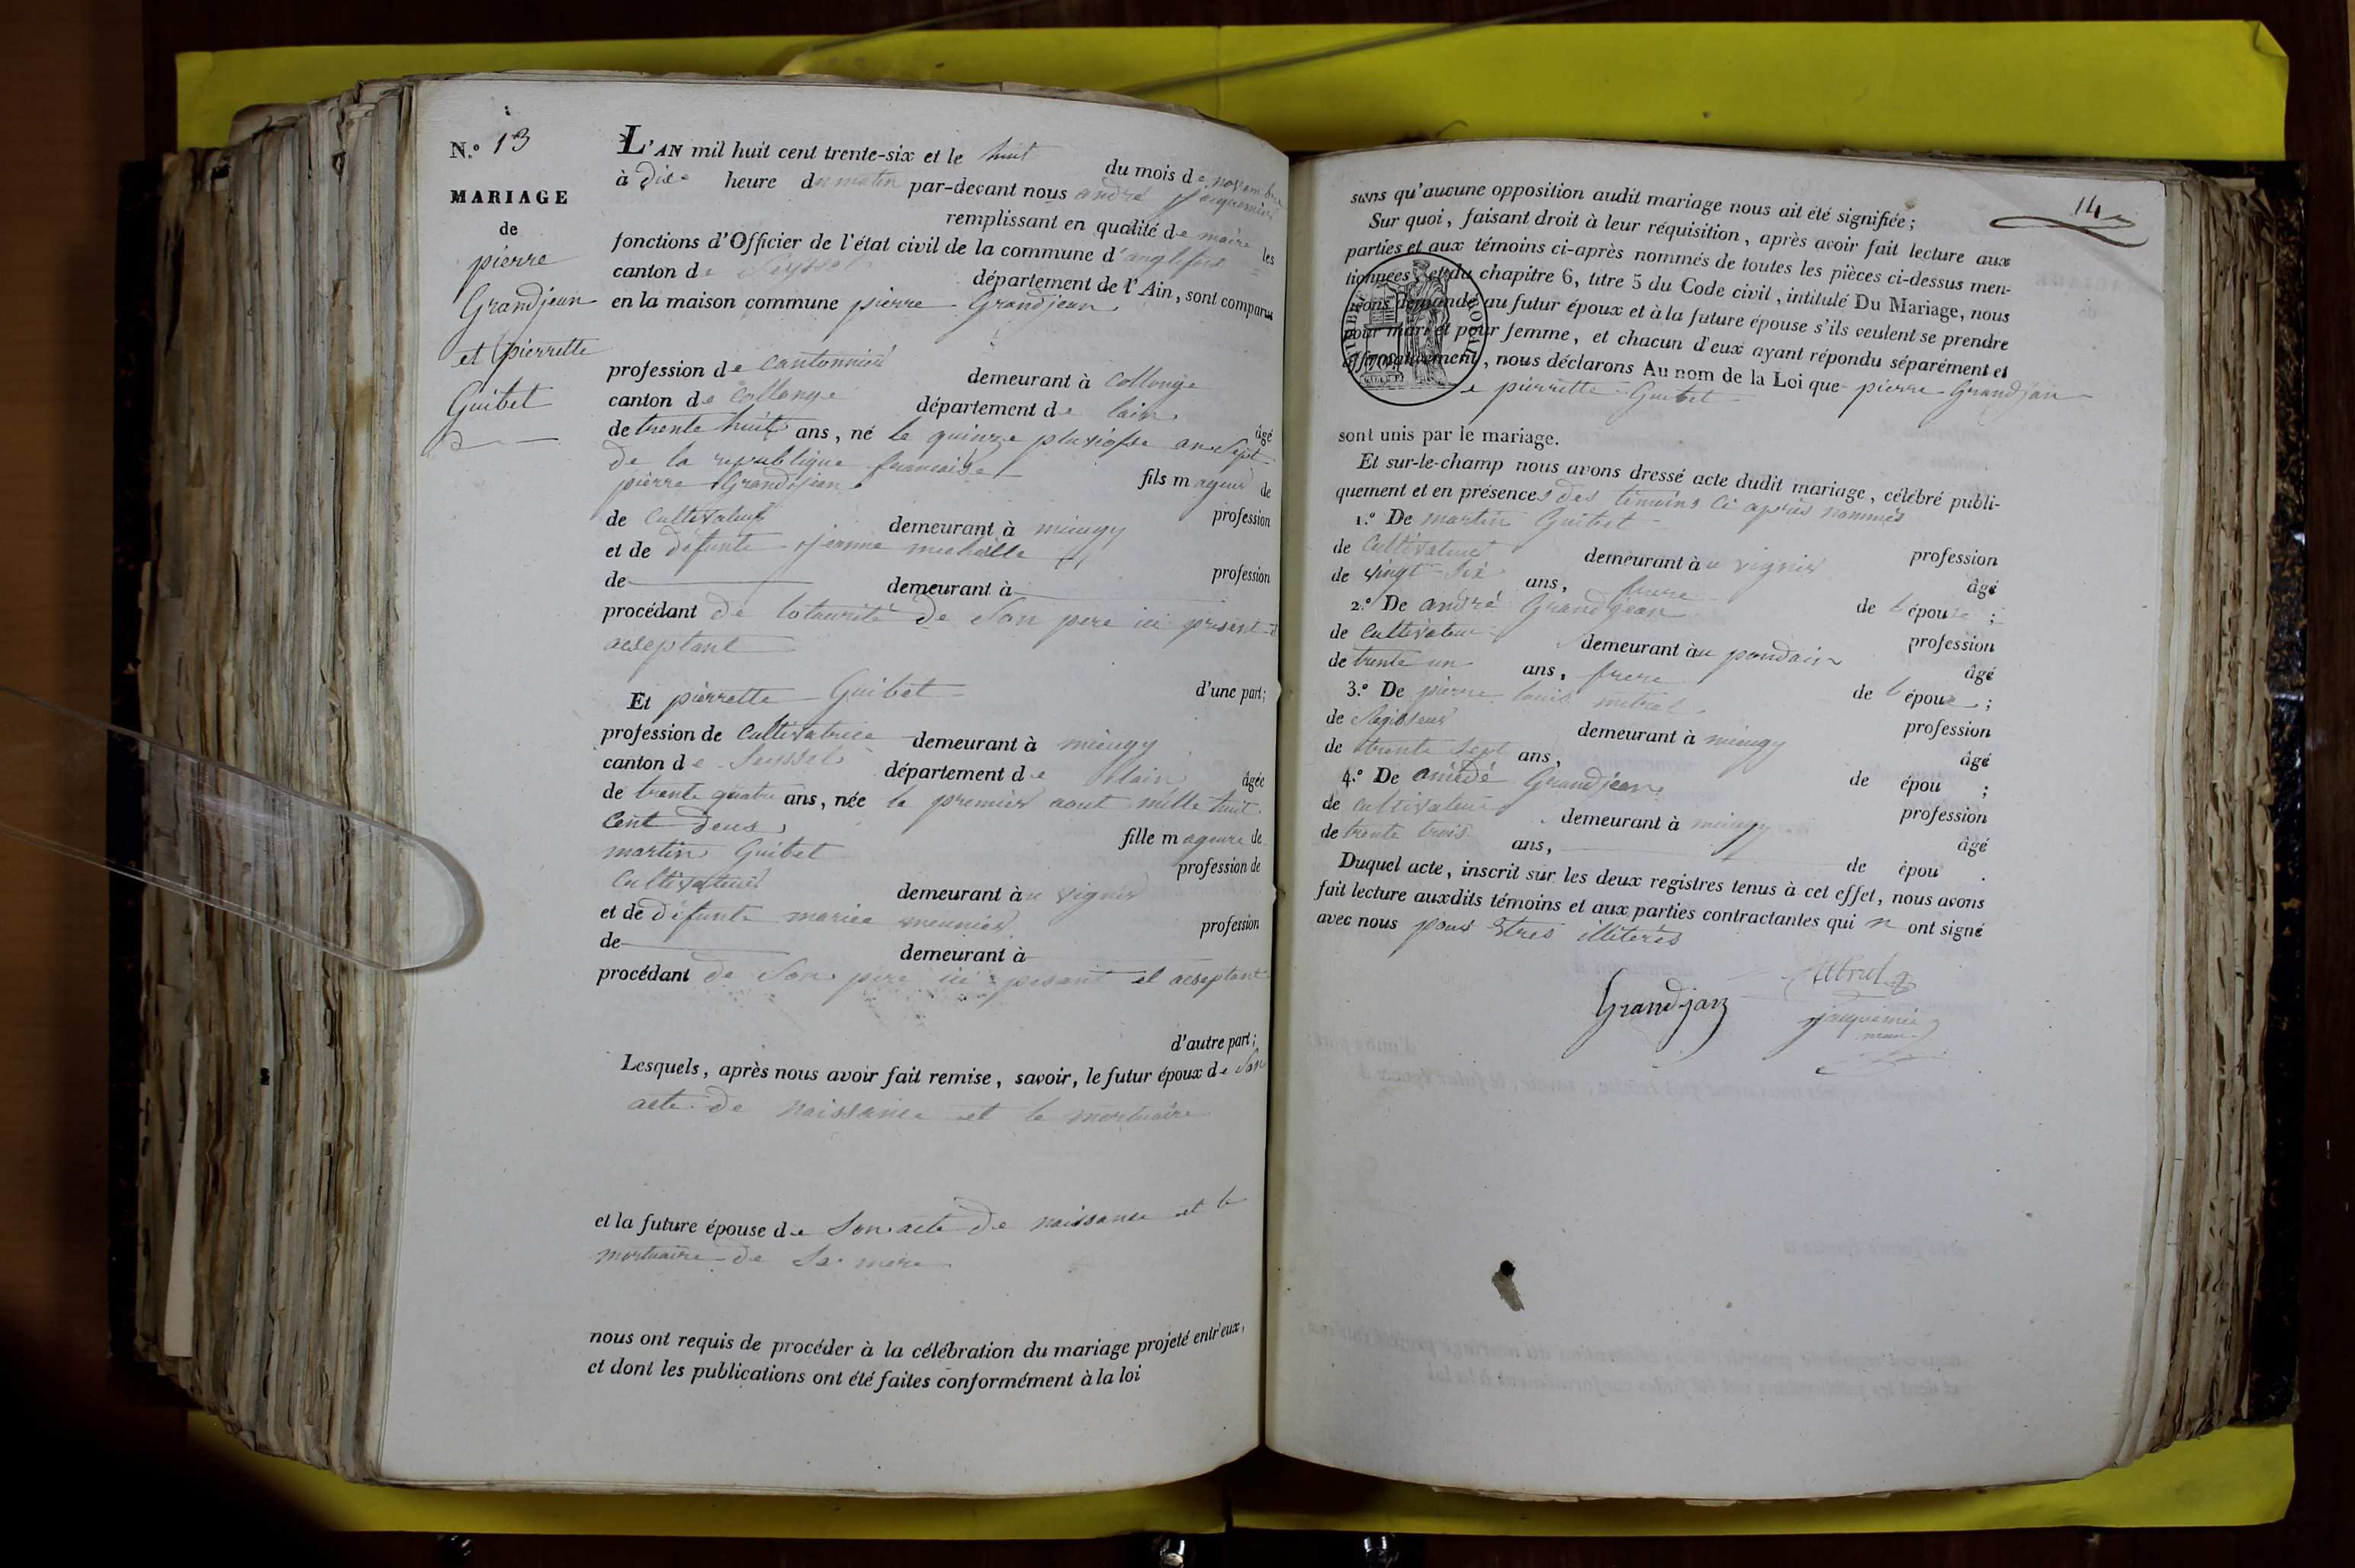 N.° 13
MARIAGE
de
pierre
Grandjean
et pierrette
Guibet
L'AN mil huit cent trente-six et le huit du mois de novembre
à dix heure du matin par-devant nous andré Jacquemier
remplissant en qualité de maire les
fonctions d'Officier de l'état civil de la commune d'anglefort
canton de Seyssel département de l'Ain, sont comparus
en la maison commune pierre Grandjean
profession de cantonnier demeurant à Collonge
canton de Collonge département de lain âgé
de trente huit ans, né le quinze pluviosse an Sept
de la republique francaise fils mageur de
pierre Grandjean profession
de Cultivateur demeurant à mieugy
et de defunte Jeanne michaille profession
de demeurant à
procédant de lotaurité de Son pere ici présent et
acseptant
d'une part;
Et pierrette Guibet
profession de Cultivatrice demeurant à mieugy
canton de Seyssel département de lain âgée
de trente quatre ans, née le premier aout mille huit
Cent deux fille mageure de
martin Guibet profession de
Cultivateur demeurant àu vignier
et de défunte mariee meunier profession
de demeurant à
procédant de Son pere ici presant et acseptant
d'autre part;
Lesquels, après nous avoir fait remise, savoir, le futur époux de Son
acte de naissance et le mortuaire
et la future épouse de Son acte de naissance et le
mortuaire de Sa mere
nous ont requis de procéder à la célébration du mariage projeté entr'eux,
et dont les publications ont été faites conformément à la loi
14
sans qu'aucune opposition audit mariage nous ait été signifiée;
Sur quoi, faisant droit à leur réquisition, après avoir fait lecture aux
parties et aux témoins ci-après nommés de toutes les pièces ci-dessus men-
tionnées, et du chapitre 6, titre 5 du Code civil, intitulé Du Mariage, nous
avons demandé au futur époux et à la future épouse s'ils veulent se prendre
pour mari et pour femme, et chacun d'eux ayant répondu séparément et
affirmativement, nous déclarons Au nom de la Loi que pierre Grandjean
e pierrette Guibet
sont unis par le mariage.
Et sur-le-champ nous avons dressé acte dudit mariage, célébré publi-
quement et en présences des témoins Ci après nommés
1.° De martin Guibet profession
de Cultivateur demeurant àu vignier âgé
de vingt Six ans, frere de l'épouse;
2.° De andré Grandjean profession
de Cultivateur demeurant àu pondain âgé
de trente un ans, frere de l'époux;
3.° De pierre louis mitral profession
de Regisseur demeurant à mieugy âgé
de trente Sept ans, de épou;
4.° De amédé Grandjean profession
de cultivateur demeurant à mieugy âgé
de trente trois ans, de épou.
Duquel acte, inscrit sur les deux registres tenus à cet effet, nous avons
fait lecture auxdits témoins et aux parties contractantes qui n ont signé
avec nous pour Etres illiterés
Grandjan
Jacquemier
maire